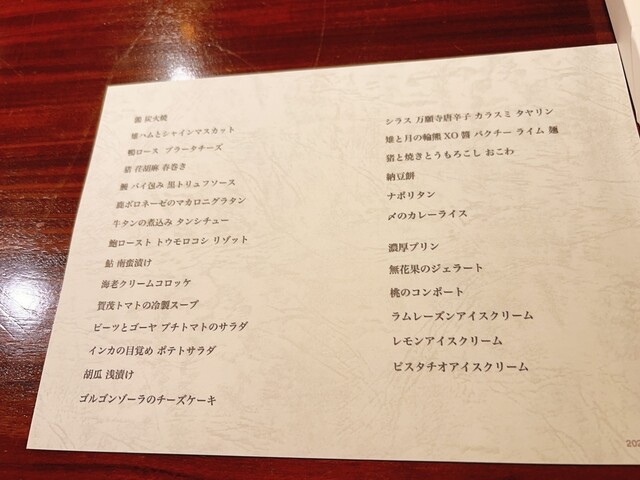 炭火焼
雉ハムとシャインマスカット
鴨ロース ブラータチーズ
猪 荏胡麻 春巻き
パイ包み 黒トリュフソース
鹿ボロネーゼのマカロニグラタン
牛タンの煮込み タンシチュー
鮑ロースト トウモロコシ リゾット
鮎 南蛮漬け
海老クリームコロッケ
賀茂トマトの冷製スープ
ビーツとゴーヤ プチトマトのサラダ
インカの目覚め ポテトサラダ
胡瓜 浅漬け
ゴルゴンゾーラのチーズケーキ
シラス 万願寺唐辛子 カラスミ タヤリン
雉と月の輪熊XO醤 パクチー ライム 麺
猪と焼きとうもろこし おこわ
納豆餅
ナポリタン
〆のカレーライス
濃厚プリン
無花果のジェラート
桃のコンポート
ラムレーズンアイスクリーム
レモンアイスクリーム
ピスタチオアイスクリーム
202